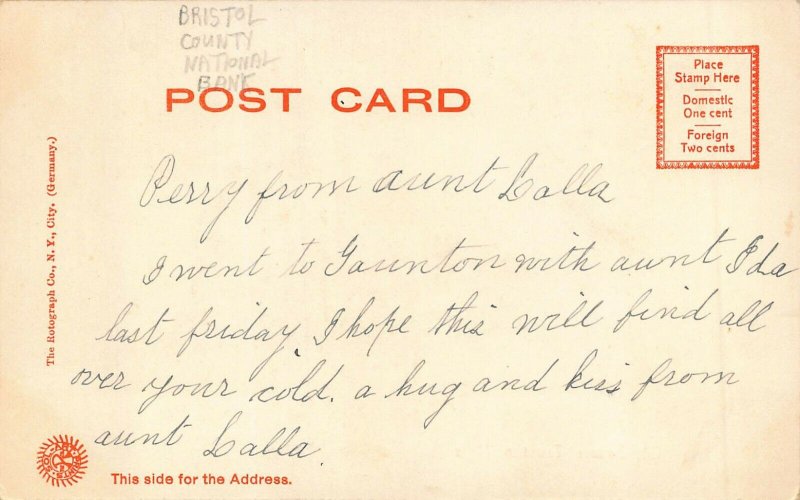 BRISTOL
COUNTY
NATIONAL
BANK
POST CARD
Place
Stamp Here
Domestic
One cent
Foreign
Two cents
The Rotograph Co., N. Y., City. (Germany.)
Perry from aunt Lalla
I went to Taunton with aunt Ida
last friday. I hope this will find all
over your cold. a hug and kiss from
aunt Lalla.
This side for the Address.